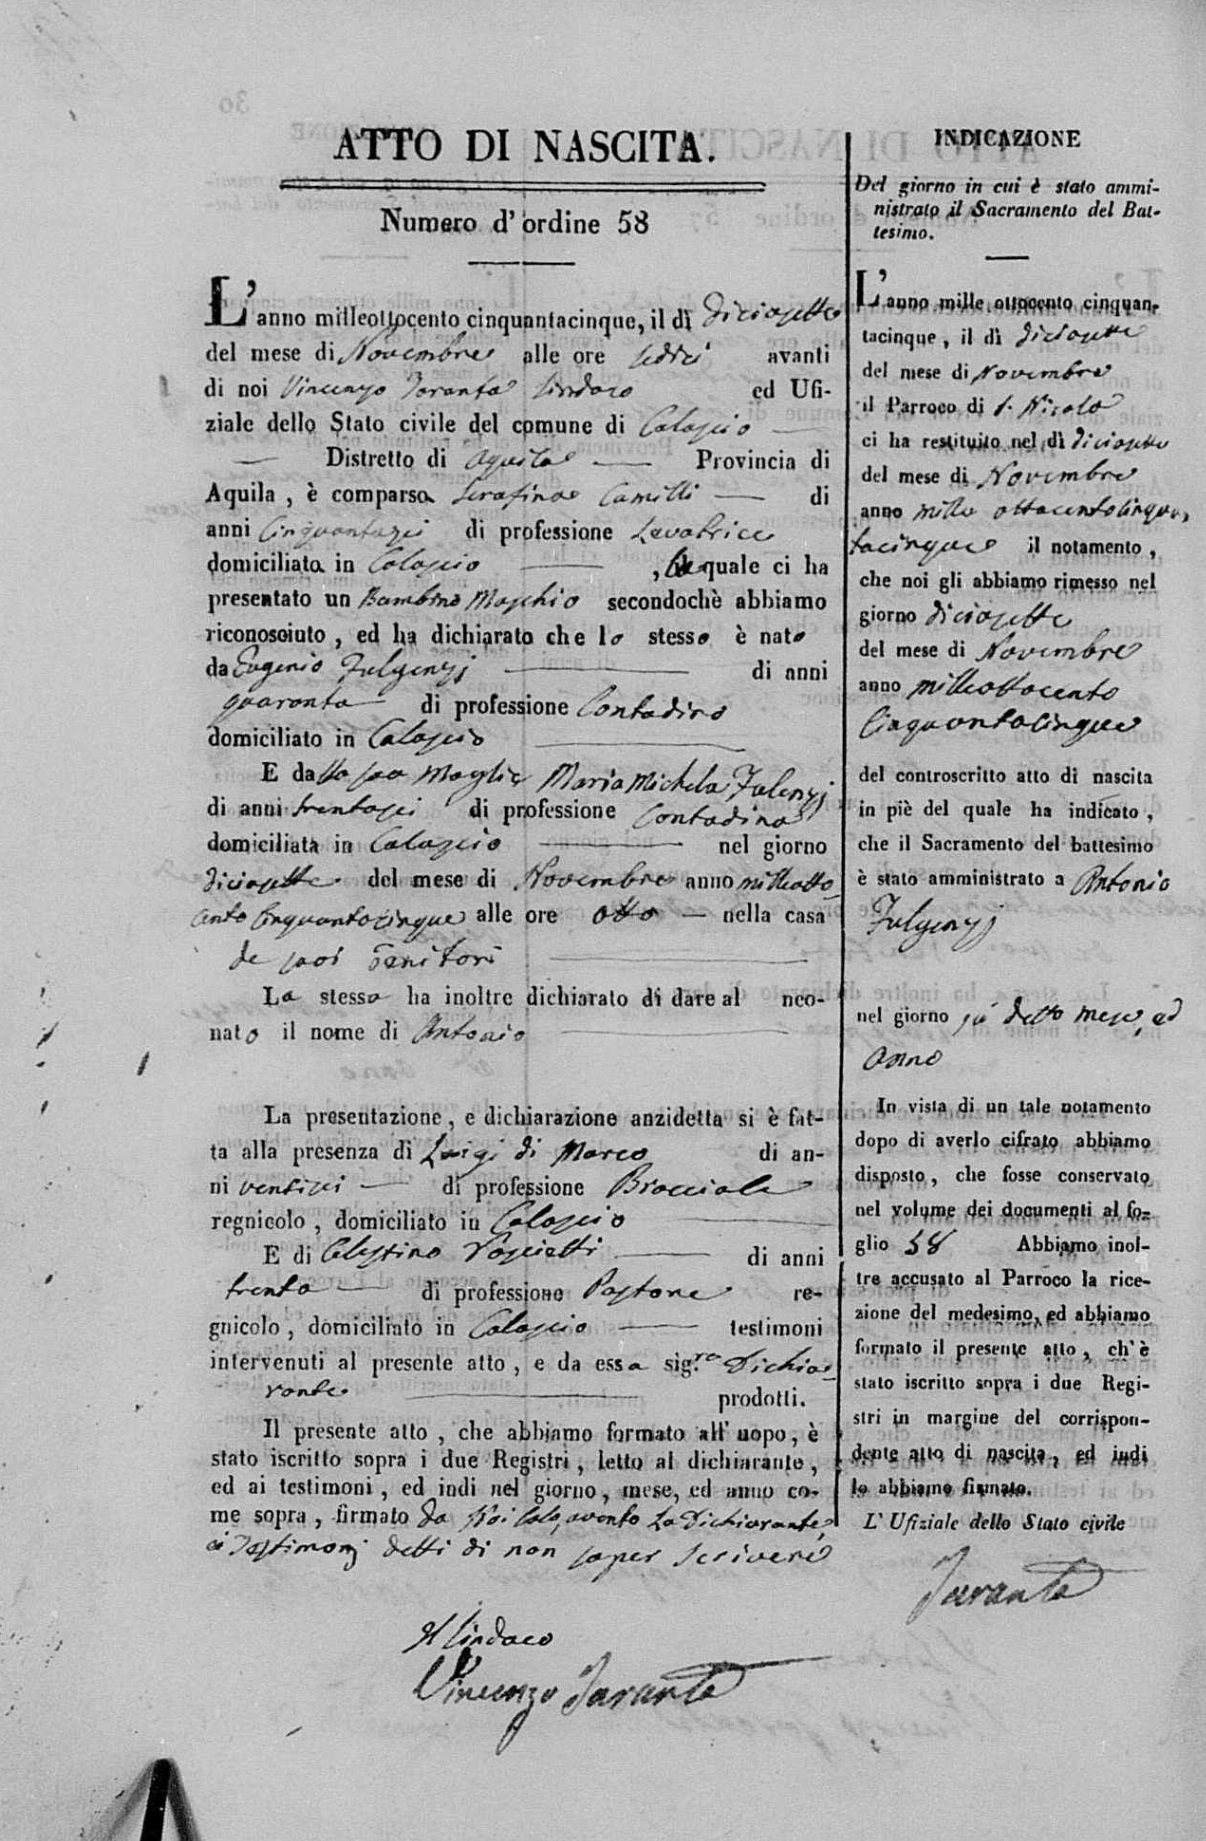 ATTO DI NASCITA.
Numero d'ordine 58
L'anno milleottocento cinquantacinque, il dì diciasette
del mese di Novembre alle ore sedici avanti
di noi Vincenzo Taranta Sindaco ed Ufi-
ziale dello Stato civile del comune di Calascio
Distretto di Aquila Provincia di
Aquila, è comparsa Serafina Camilli di
anni Cinquantasei di professione Levatrice
domiciliata in Calascio , la quale ci ha
presentato un Bambino Maschio secondochè abbiamo
riconosciuto, ed ha dichiarato che lo stesso è nato
da Eugenio Fulgenzj di anni
quaranta di professione Contadino
domiciliato in Calascio
E dalla sua Moglie Maria Michela Fulgenzj
di anni trentasei di professione Contadina
domiciliata in Calascio nel giorno
diciasette del mese di Novembre anno milleotto-
cento Cinquantacinque alle ore otto nella casa
de suoi Genitori
La stessa ha inoltre dichiarato di dare al neo-
nato il nome di Antonio
La presentazione, e dichiarazione anzidetta si è fat-
ta alla presenza di Luigi di Marco di an-
ni ventisei di professione Bracciale
regnicolo, domiciliato in Calascio
E di Celestino di anni
trenta di professione Pastore re-
gnicolo, domiciliato in Calascio testimoni
intervenuti al presente atto, e da essa sig.ra Dichia-
rante prodotti.
Il presente atto, che abbiamo formato all'uopo, è
stato iscritto sopra i due Registri, letto al dichiarante,
ed ai testimoni, ed indi nel giorno, mese, ed anno co-
me sopra, firmato da Noi solo, avendo La Dichiarante,
ei Testimonj detti di non saper scrivere
Il Sindaco
Vincenzo Taranta
INDICAZIONE
Del giorno in cui è stato ammi-
nistrato il Sacramento del Bat-
tesimo.
L'anno mille ottocento cinquan-
tacinque, il dì diciasette
del mese di Novembre
il Parroco di S. Nicola
ci ha restituito nel dì diciasette
del mese di Novembre
anno mille ottocentocinquan-
tacinque il notamento,
che noi gli abbiamo rimesso nel
giorno diciasette
del mese di Novembre
anno milleottocento
Cinquantacinque
del controscritto atto di nascita
in piè del quale ha indicato,
che il Sacramento del battesimo
è stato amministrato a Antonio
Fulgenzj
nel giorno su detto mese, ed
anno
In vista di un tale notamento
dopo di averlo cifrato abbiamo
disposto, che fosse conservato
nel volume dei documenti al fo-
glio 58 Abbiamo inol-
tre accusato al Parroco la rice-
zione del medesimo, ed abbiamo
formato il presente atto, ch'è
stato iscritto sopra i due Regi-
stri in margine del corrispon-
dente atto di nascita, ed indi
lo abbiamo firmato.
L'Ufiziale dello Stato civile
Taranta